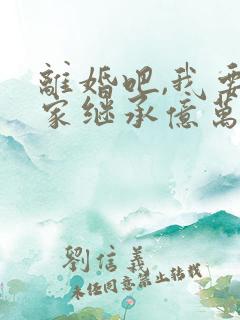 離婚吧,我要
家继承億萬
劉信義
未经同意禁止转载